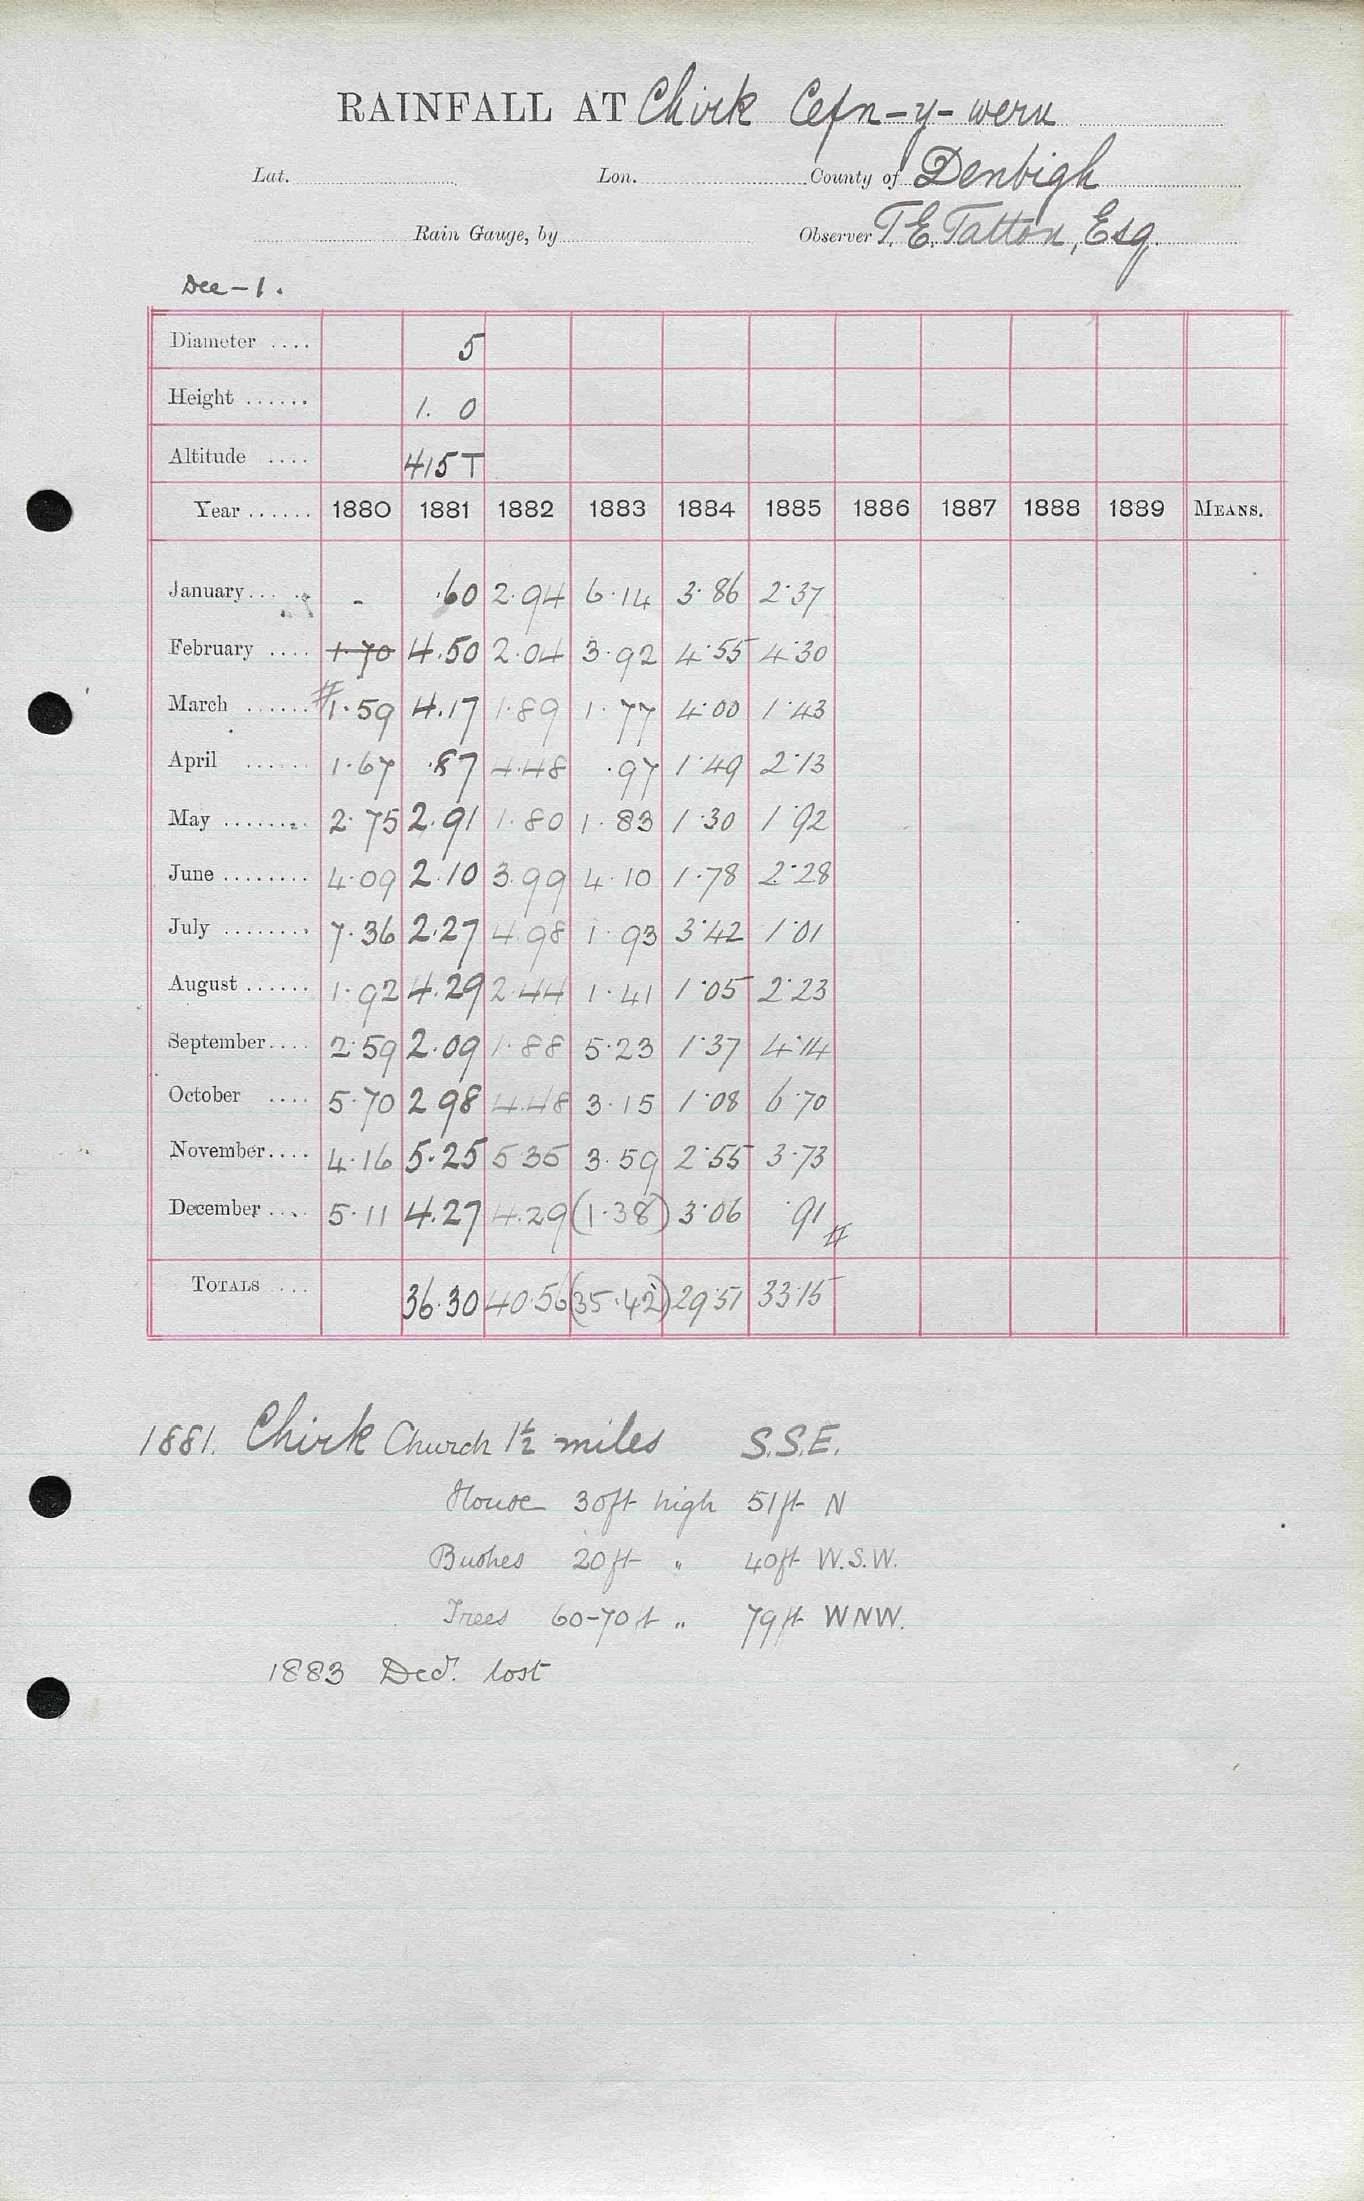 RAINFALL AT Chirk Cefn-y-wern
Lat. Lon. County of Denbigh
Rain Gauge, by Observer T. E. Tatton, Esq.
Dee-1.
Diameter .... 5
Height ...... 1. 0
Altitude .... 415 T
Year ...... 1880 1881 1882 1883 1884 1885 1886 1887 1888 1889 MEANS.
January .... - .60 2.94 6.14 3.86 2.37
February .... 1.70 4.50 2.04 3.92 4.55 4.30
March ...... # 1.59 4.17 1.89 1.77 4.00 1.43
April ...... 1.67 .87 4.48 .97 1.49 2.13
May ........ 2.75 2.91 1.80 1.83 1.30 1.92
June ........ 4.09 2.10 3.99 4.10 1.78 2.28
July ........ 7.36 2.27 4.98 1.93 3.42 1.01
August ...... 1.92 4.29 2.44 1.41 1.05 2.23
September.... 2.59 2.09 1.88 5.23 1.37 4.14
October .... 5.70 2 98 4.48 3.15 1.08 6.70
November.... 4.16 5.25 5 35 3.59 2.55 3.73
December .... 5.11 4.27 4.29 (1.38) 3.06 .91 #
TOTALS .... 36.30 40.56 (35.42) 29.51 33.15
1881. Chirk Church 1½ miles S.S.E.
House 30ft high 51ft N
Bushes 20ft " 40ft W.S.W.
Trees 60-70ft " 79ft WNW.
1883 Decr. lost